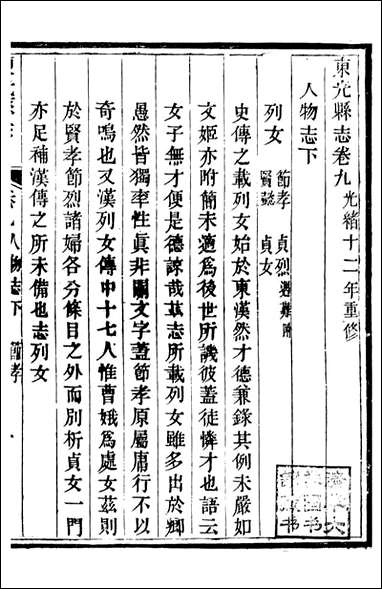 東光縣志卷九 光緒十二年重修
人物志下
列女 節孝 貞烈 遇難附
賢慈 貞女
史傳之載列女始於東漢然才德兼錄其例未嚴如
文姬亦附簡末適爲後世所譏彼蓋徒憐才也語云
女子無才便是德諒哉茲志所載列女雖多出於鄉
愚然皆獨率性眞非關文字蓋節孝原屬庸行不以
奇鳴也又漢列女傳中十七人惟曹娥爲處女茲則
於賢孝節烈諸婦各分條目之外而別析貞女一門
亦足補漢傳之所未備也志列女
人物志下 節孝